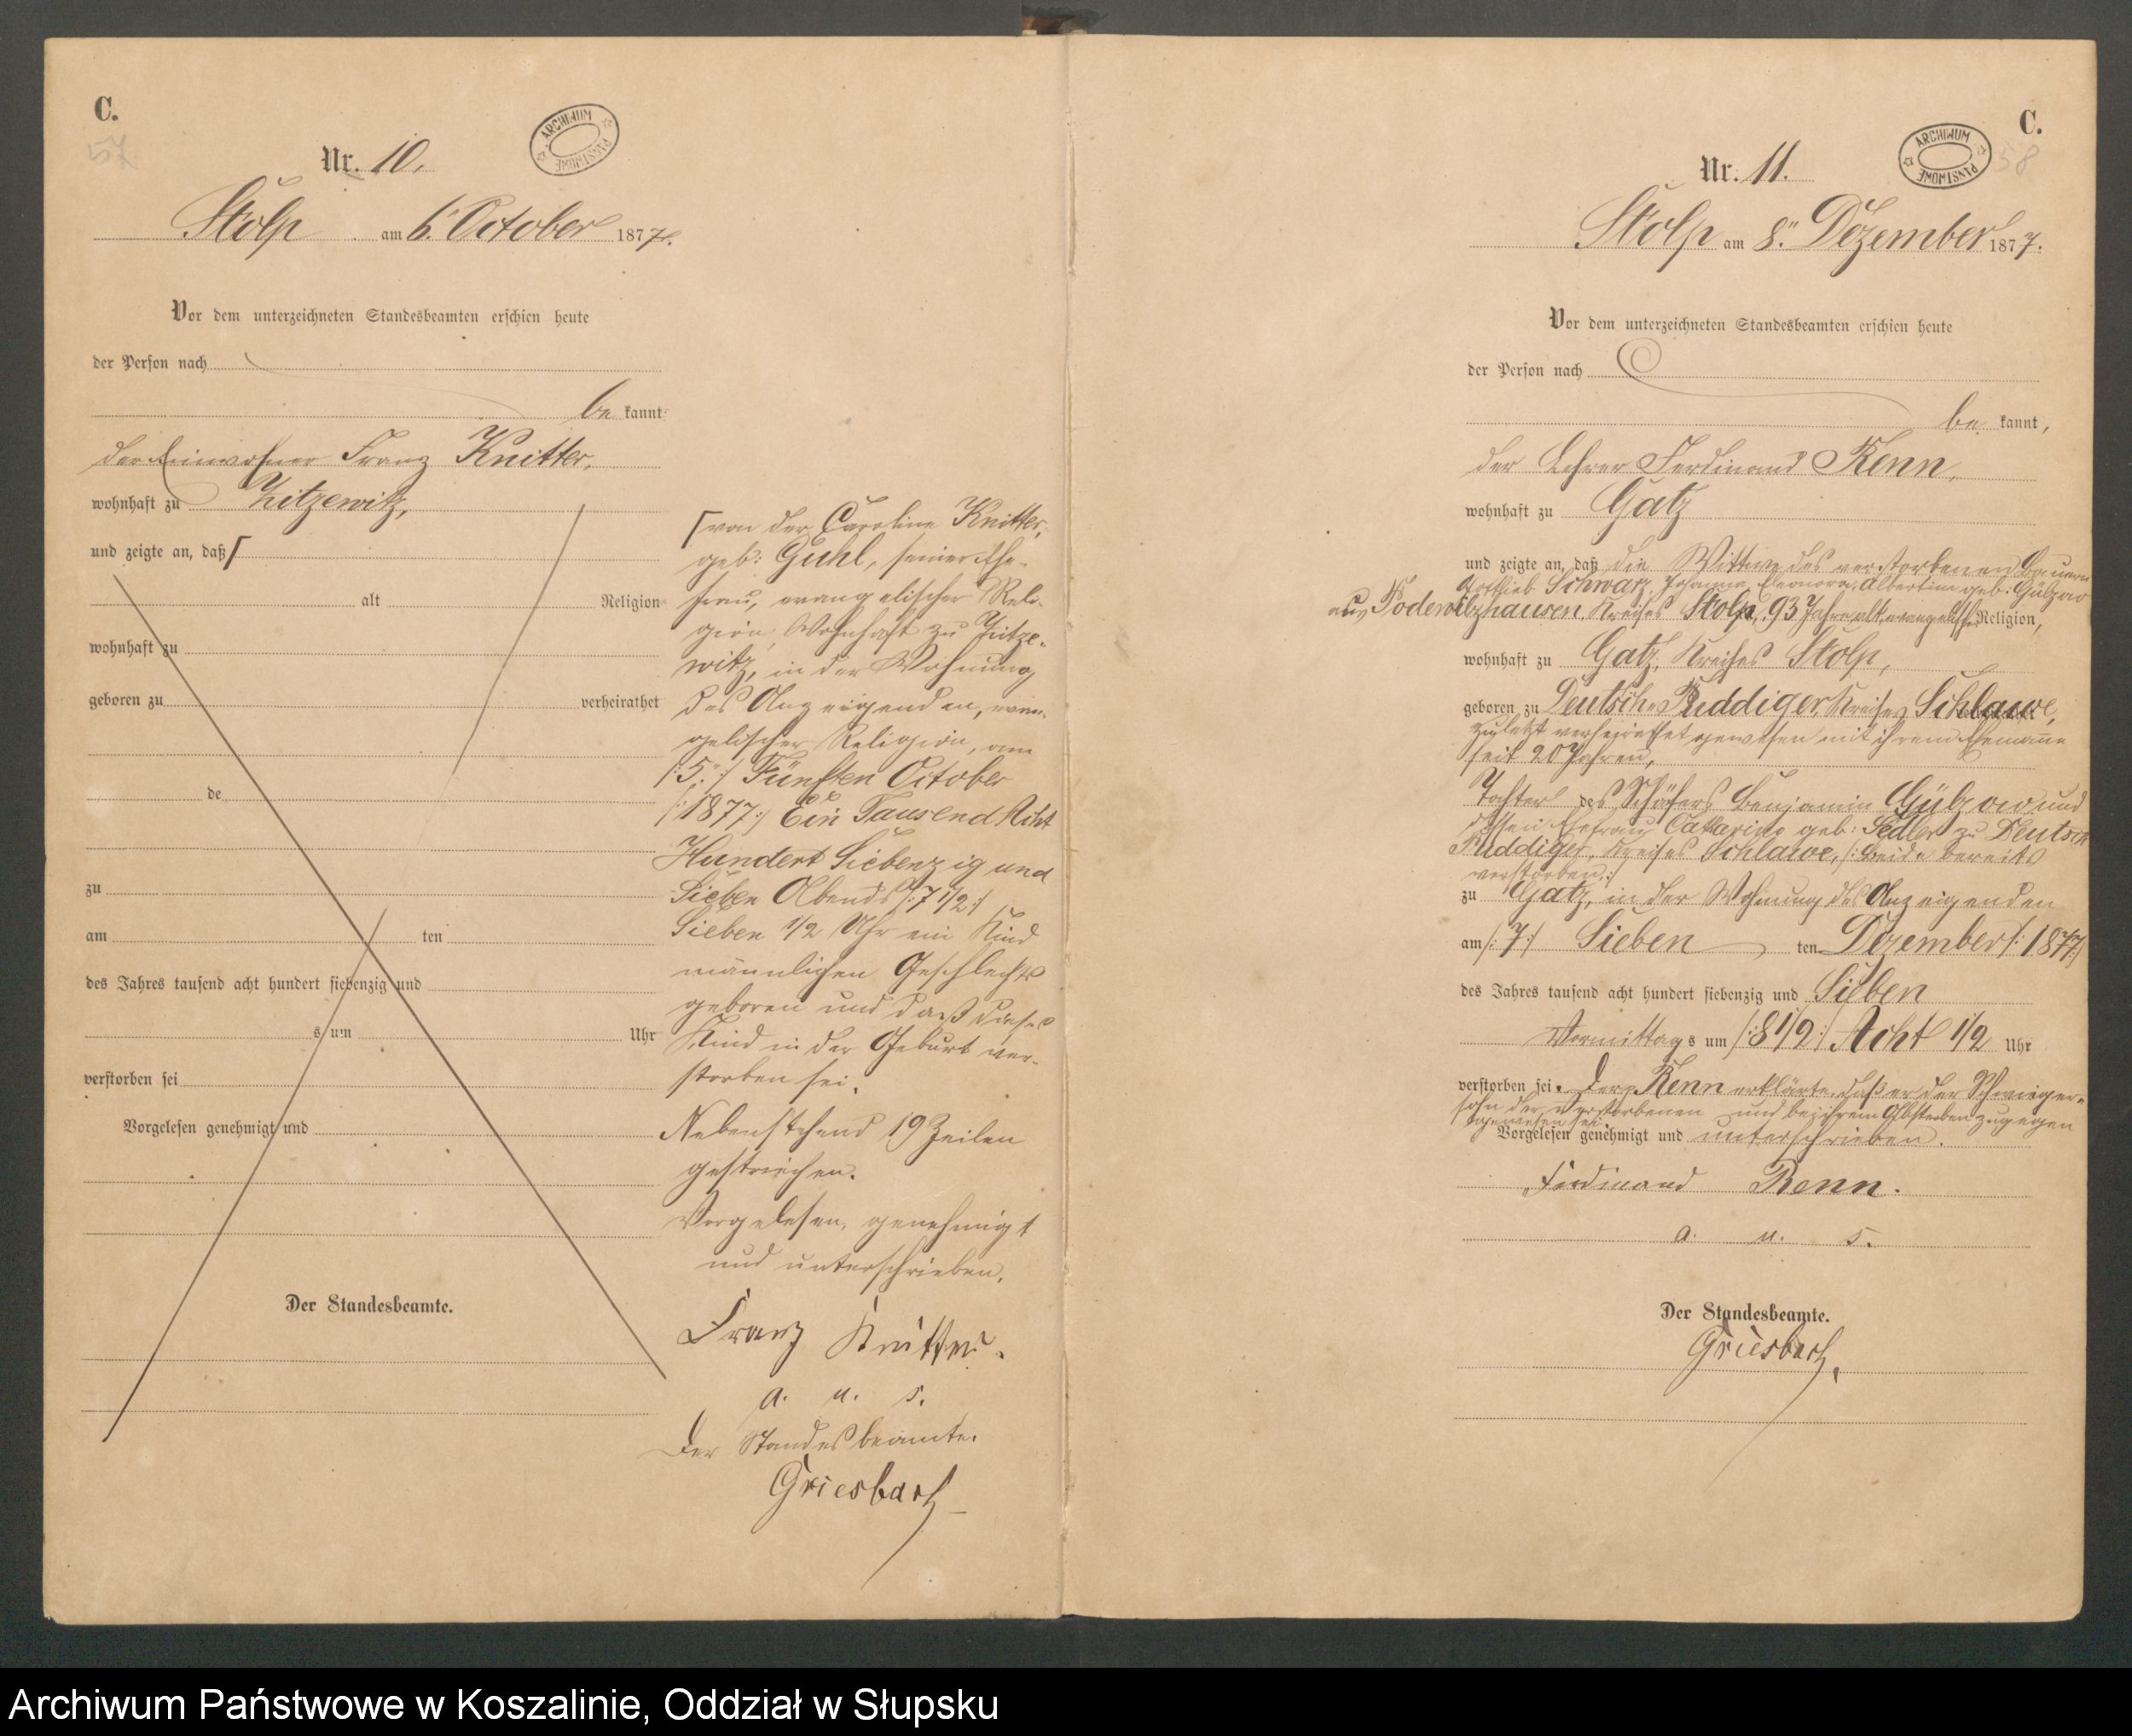 C.
57
Nr. 10.
ARCHIWUM PAŃSTWOWE
Stolp am 6. October 1877.
Vor dem unterzeichneten Standesbeamten erschien heute
der Person nach
be kannt
der Einwohner Franz Knitter,
wohnhaft zu Zitzewitz,
und zeigte an, daß ┌
alt Religion
wohnhaft zu
geboren zu verheirathet
de
zu
am ten
des Jahres tausend acht hundert siebenzig und
s um Uhr
verstorben sei
Vorgelesen genehmigt und
Der Standesbeamte.
┌ von der Caroline Knitter,
geb: Guhl, seiner Ehe-
frau, evangelischer Reli-
gion, wohnhaft zu Zitze-
witz, in der Wohnung
des Anzeigenden, evan-
gelischer Religion, am
/:5.:/ Fünften October
/:1877:/ Ein Tausend Acht
Hundert Siebenzig und
Sieben Abends /:7 1/2:/
Sieben 1/2 Uhr ein Kind
männlichen Geschlechts
geboren und daß dieses
Kind in der Geburt ver-
storben sei.
Nebenstehend 19 Zeilen
gestrichen.
Vorgelesen, genehmigt
und unterschrieben.
Franz Knitter.
a. u. s.
Der Standesbeamte.
Griesbach
C.
58
Nr. 11.
ARCHIWUM PAŃSTWOWE
Stolp am 8. Dezember 1877.
Vor dem unterzeichneten Standesbeamten erschien heute
der Person nach
be kannt,
der Lehrer Ferdinand Renn,
wohnhaft zu Gatz
und zeigte an, daß die Wittwe des verstorbenen Bauern
Gottlieb Schwarz, Johanna, Eleonora, Albertine geb: Gülzow
aus Podewilshausen, Kreises Stolp, 93 Jahre alt, evangelischer Religion,
wohnhaft zu Gatz, Kreises Stolp,
geboren zu Deutsch Puddiger, Kreises Schlawe,
zuletzt verheirathet gewesen mit ihrem Ehemanne
seit 20 Jahren,
Tochter des Schäfers Benjamin Gülzow und
dessen Ehefrau Catharina geb: Sedler zu Deutsch
Puddiger, Kreises Schlawe, /: Beide bereits
verstorben:/
zu Gatz, in der Wohnung des Anzeigenden
am /:7:/ Sieben ten Dezember /:1877:/
des Jahres tausend acht hundert siebenzig und Sieben
Vormittags um /:8 1/2:/ Acht 1/2 Uhr
verstorben sei. Der p. Renn erklärte, daß er der Schwieger-
sohn der Verstorbenen und bei ihrem Absterben zugegen
gewesen sei.
Vorgelesen genehmigt und unterschrieben.
Ferdinand Renn.
a. u. s.
Der Standesbeamte.
Griesbach.
Archiwum Państwowe w Koszalinie, Oddział w Słupsku